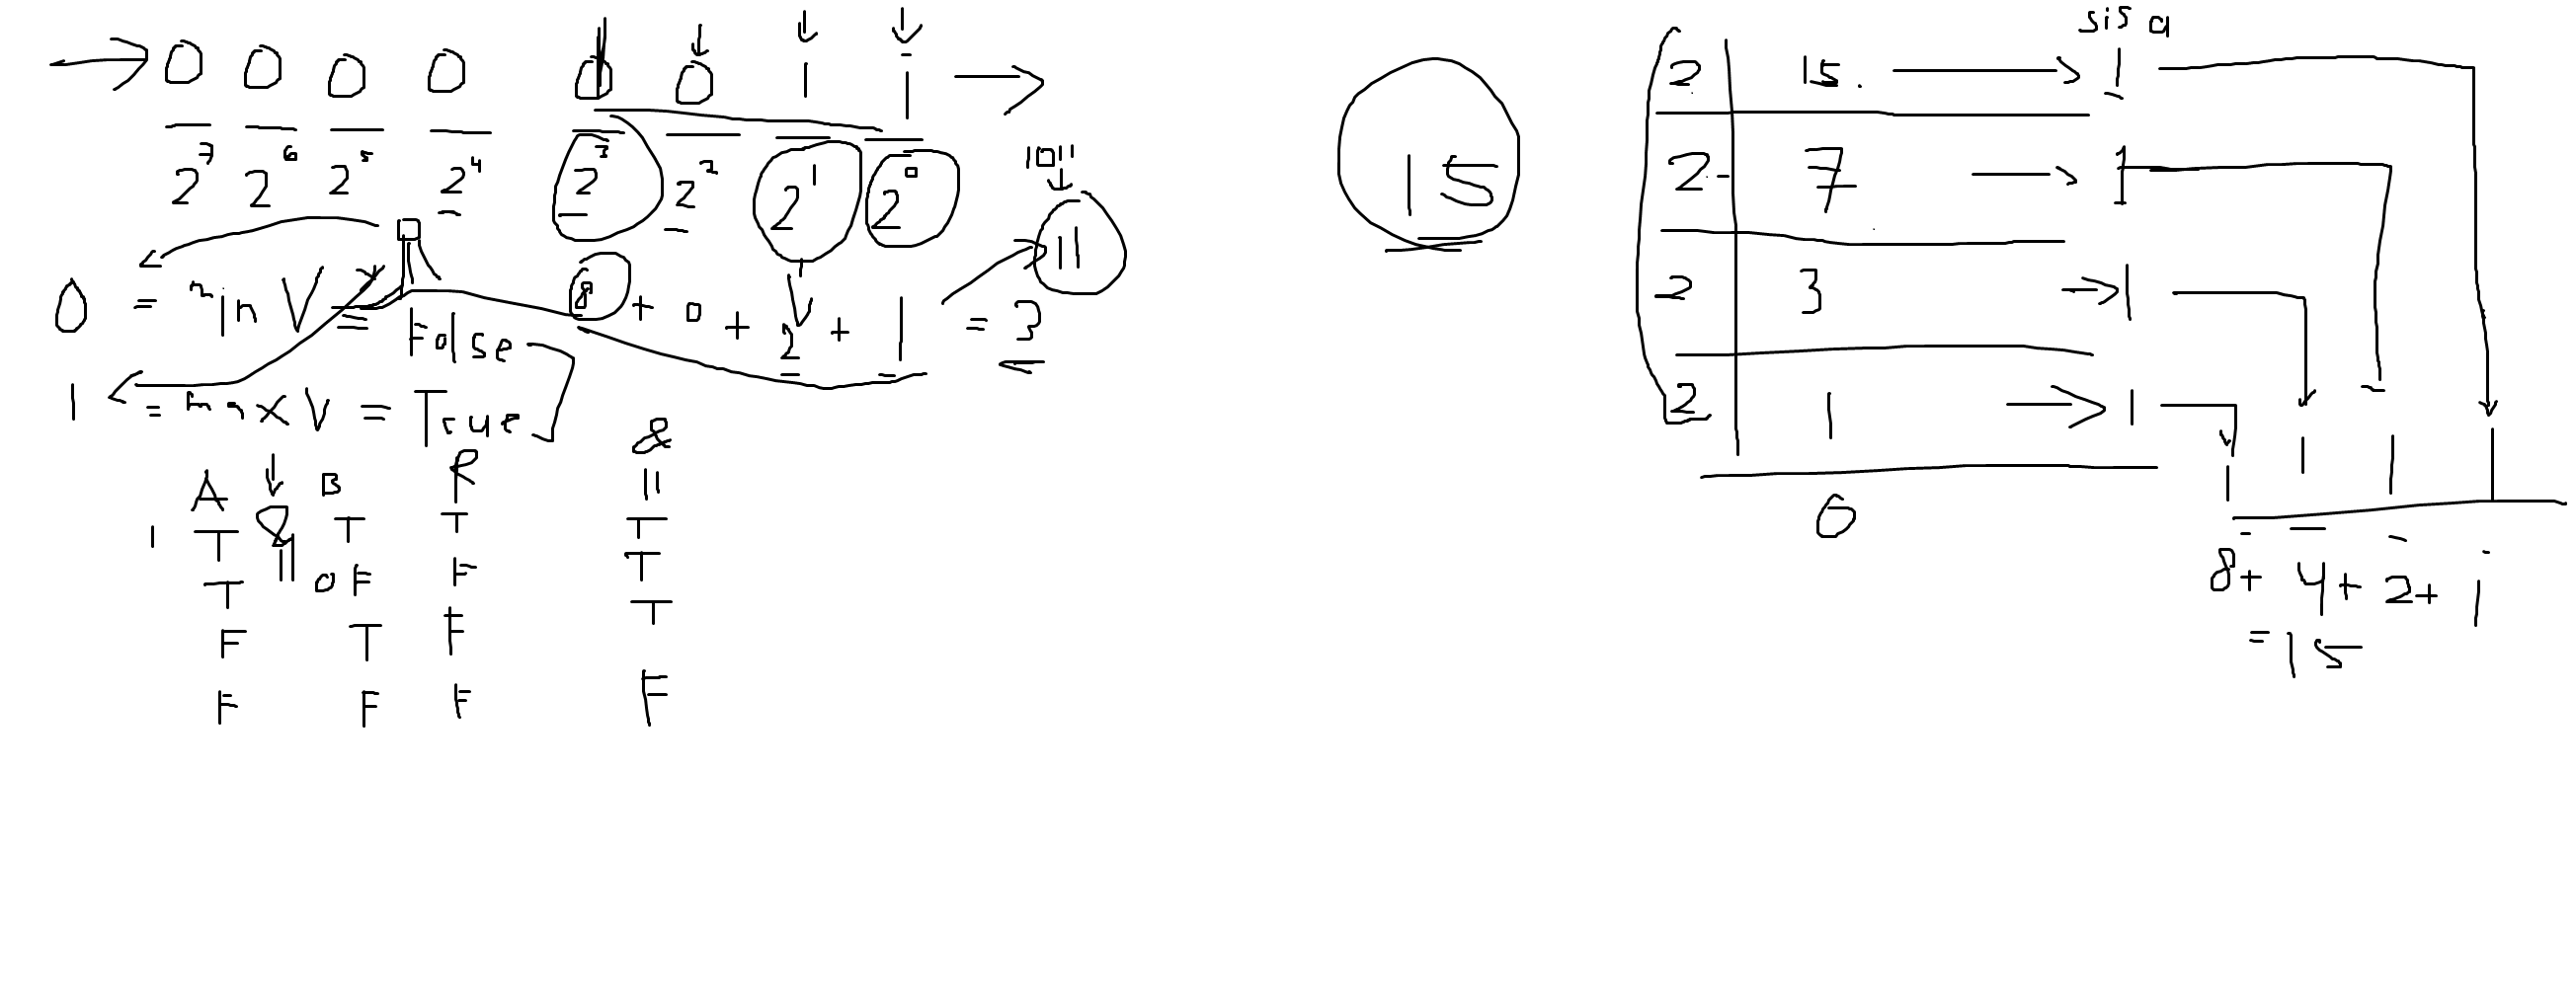 0 0 0 0 0 0 1 1
2^7 2^6 2^5 2^4 2^3 2^2 2^1 2^0
1011
11
0 = min V = False
8 + 0 + 2 + 1 = 3
1 = max V = True
A & B R &
|| ||
1 T T T T
T 0F F T
F T F T
F F F F
15
sisa
2 15. 1
2 7 1
2 3 1
2 1 1
0
1 1 1 1
8+ 4+ 2+ 1
= 15